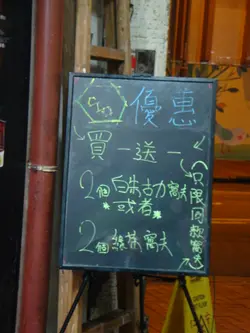 優惠
買一送一
2個 白朱古力窩夫
或者
2個 綠茶窩夫
(只限同款窩夫)